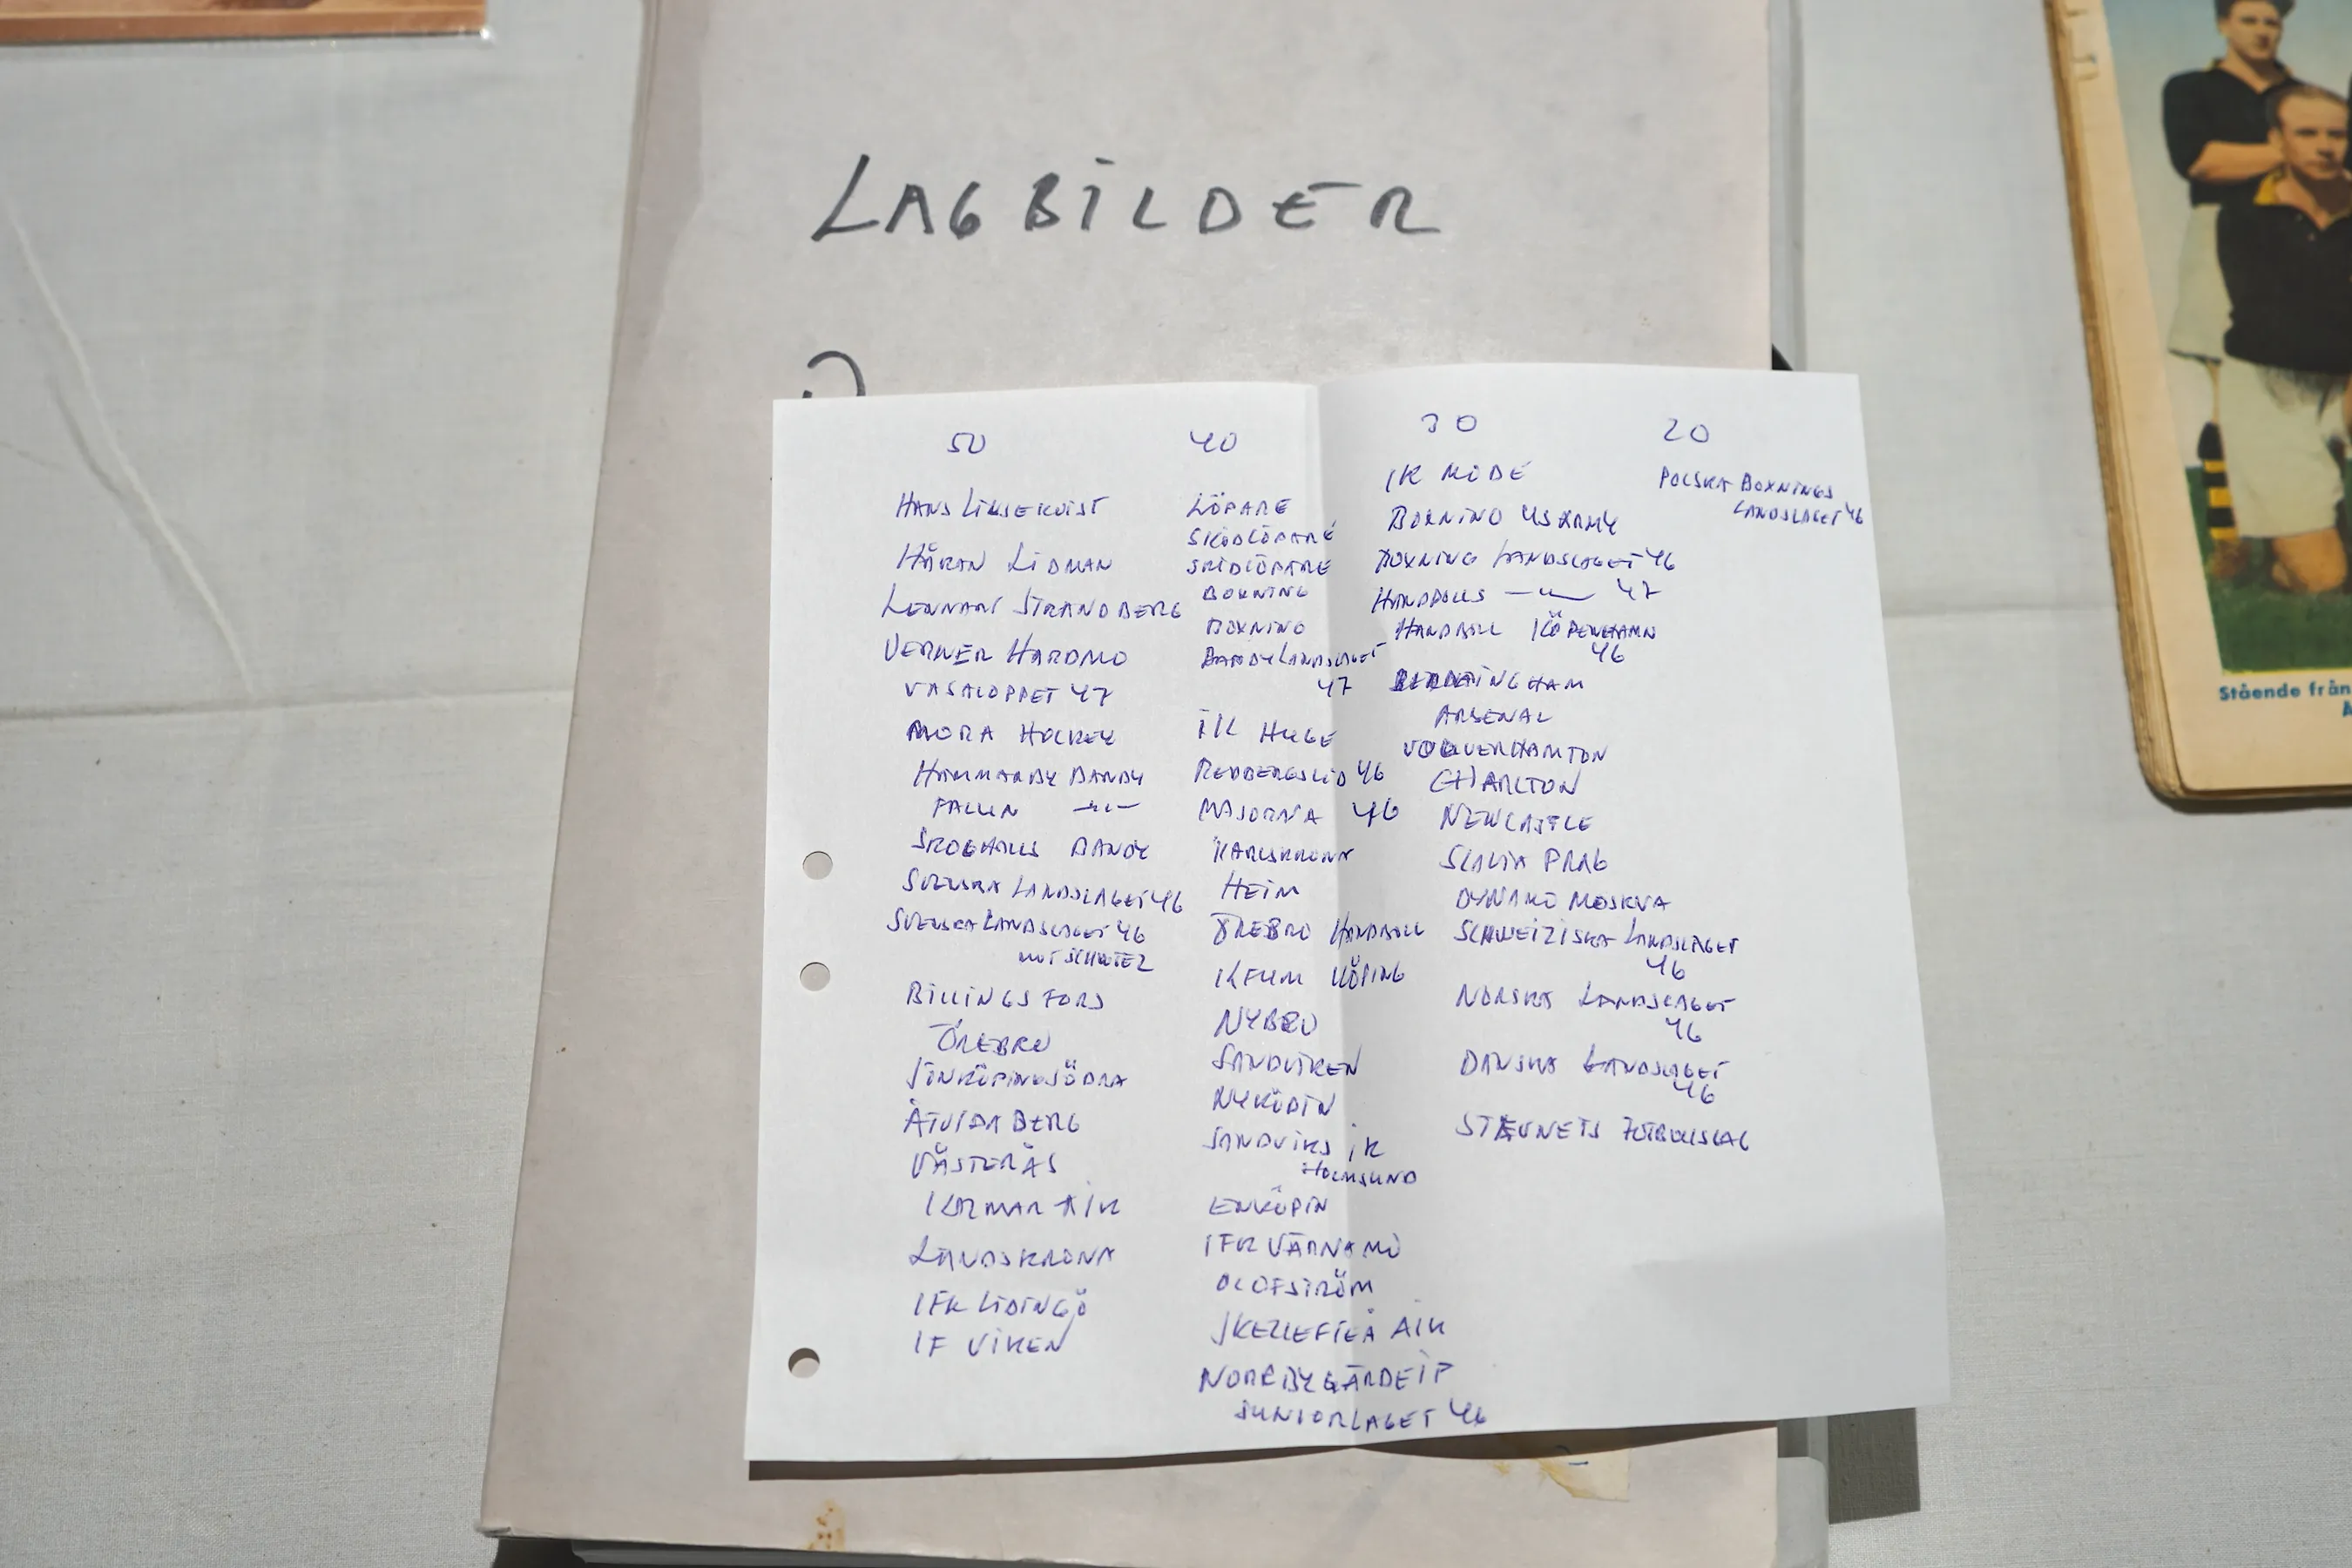 LAGBILDER
50
HANS LIKSEKVIST
HÅKAN LIDMAN
LENNART STRANDBERG
VERNER HARDMO
VASALOPPET 47
MORA HOCKEY
HAMMARBY BANDY
FALUN —"—
SKOGHALLS BANDY
SVENSKA LANDSLAGET 46
SVENSKA LANDSLAGET 46
MOT SCHWEIZ
BILLINGSFORS
ÖREBRO
JÖNKÖPINGSÖDRA
ÅTVIDABERG
VÄSTERÅS
KALMAR AIK
LANDSKRONA
IFK LIDINGÖ
IF VIKEN
40
LÖPARE
SKIDLÖPARE
SKIDLÖPARE
BOXNING
BOXNING
BANDYLANDSLAGET
47
IK HUGE
REDBERGSLID 46
MAJORNA 46
KARLSKRONA
HEIM
ÖREBRO HANDBOLL
KFUM KÖPING
NYBRO
SANDVIKEN
NYKÖPIN
SANDVIKS IK
HOLMSUND
ENKÖPIN
IFK VÄRNAMO
OLOFSTRÖM
SKELLEFTEÅ AIK
NORRBYGÄRDE IF
JUNIORLAGET 46
30
IK KODE
BOXNING US ARMY
BOXNING LANDSLAGET 46
HANDBOLLS —"— 47
HANDBOLL KÖPENHAMN
46
INGHAM
ARSENAL
VOLVERHAMTON
CHARLTON
NEWCASTLE
SLAVIA PRAG
DYNAMO MOSKVA
SCHWEIZISKA LANDSLAGET
46
NORSKA LANDSLAGET
46
DANSKA LANDSLAGET
46
STÆVNETS FOTBOLLSLAG
20
POLSKA BOXNINGS
LANDSLAGET 46
Stående från